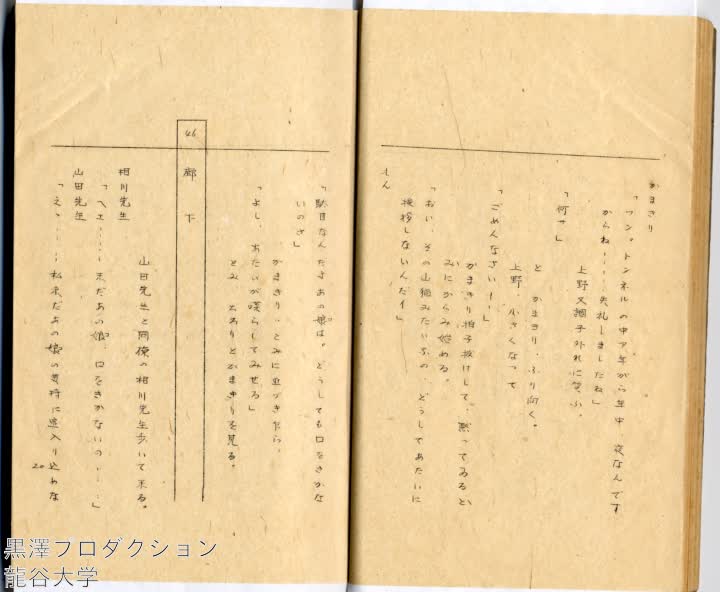 かまきり
「フン。トンネルの中ア年がら年中、夜なんです
からね……失礼しましたね」
上野又調子外れに笑ふ。
「何サ」
と かまきり、ふり向く。
上野、小さくなって
「ごめんなさいー」
かまきり拍子抜けして、黙ってゐるとみ
にからみ始める。
「おい、その山猫みたいなの、どうしてあたいに
挨拶しないんだイ」
しん
「駄目なんだよあの娘は。どうしても口をきかな
いのさ」
かまきり、とみに近づき乍ら、
「よし、あたいが喋らしてみせる」
とみ、じろりとかまきりを見る。
46 廊下
山田先生と同僚の相川先生歩いて来る。
相川先生
「ヘエ……まだあの娘、口をきかないの……」
山田先生
「えゝ……私まだあの娘の気持に這入り込めな
20
黒澤プロダクション
龍谷大学